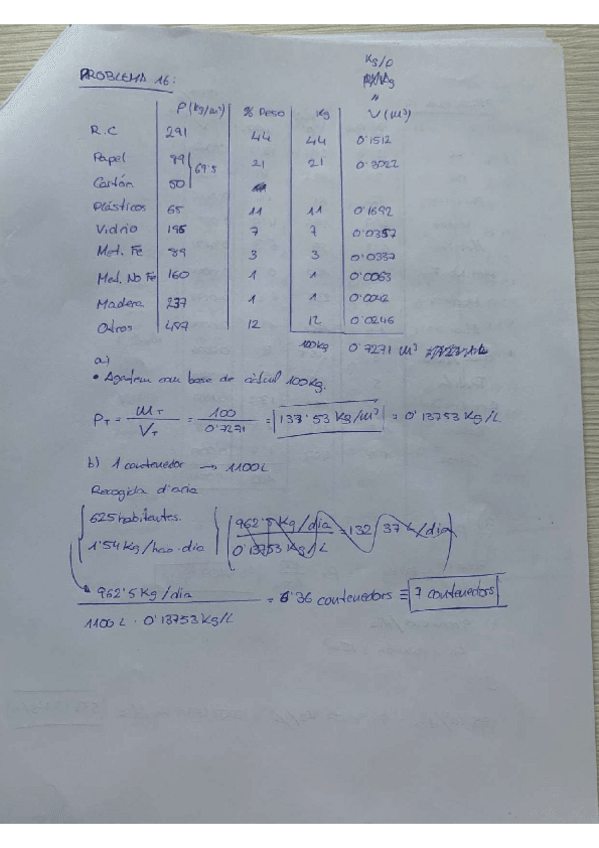 PROBLEMA 16:
Kg/ρ
"
ρ (Kg/m³) % Peso Kg V (m³)
R.C 291 44 44 0'1512
Papel 89 69'5 21 21 0'3022
Cartón 50
Plásticos 65 11 11 0'1692
Vidrio 196 7 7 0'0357
Met. Fe 89 3 3 0'0337
Met. No Fe 160 1 1 0'0063
Madera 237 1 1 0'0042
Otros 487 12 12 0'0246
100Kg 0'7271 m³
a)
• Agafem com base de càlcul 100Kg.
ρT = mT / VT = 100 / 0'7271 = 137'53 Kg/m³ = 0'13753 Kg/L
b) 1 contenedor → 1100L
Recogida diaria
625 habitantes.
1'54 Kg/hab·dia
962'5 Kg/dia / 0'13753 Kg/L = 132 37 L/dia
962'5 Kg/dia / 1100 L · 0'13753 Kg/L = 6'36 contenedors ≡ 7 contenedors